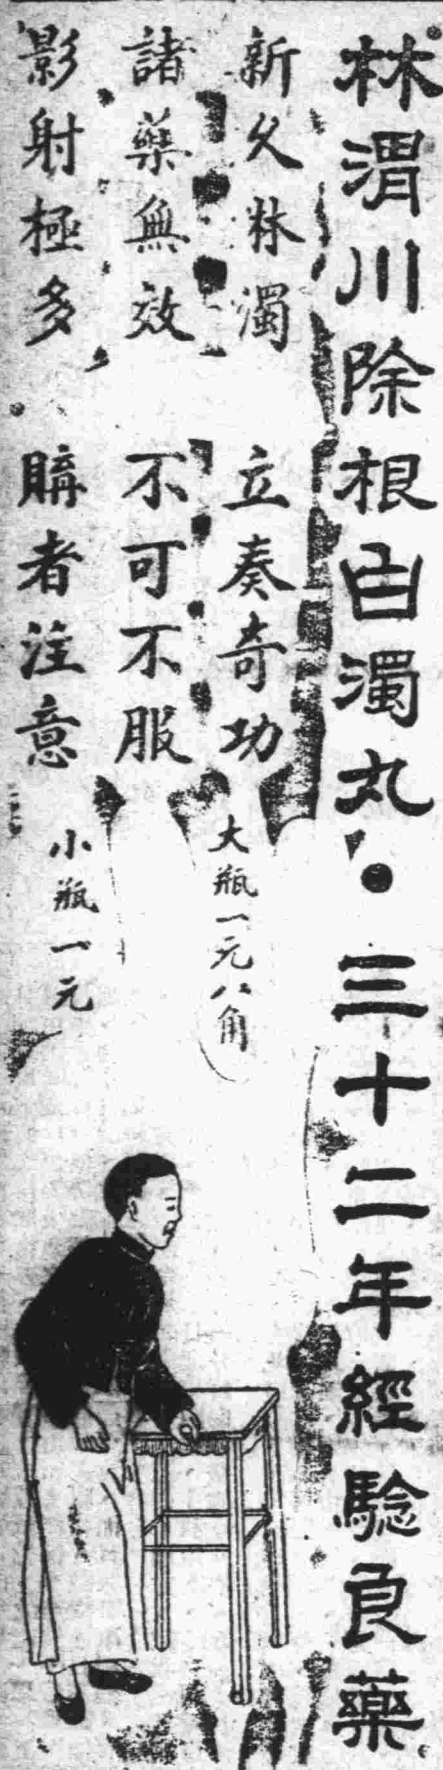 林渭川除根白濁丸●三十二年經驗良藥
新久淋濁 立奏奇功
諸藥無效 不可不服
影射極多 購者注意
大瓶一元八角
小瓶一元